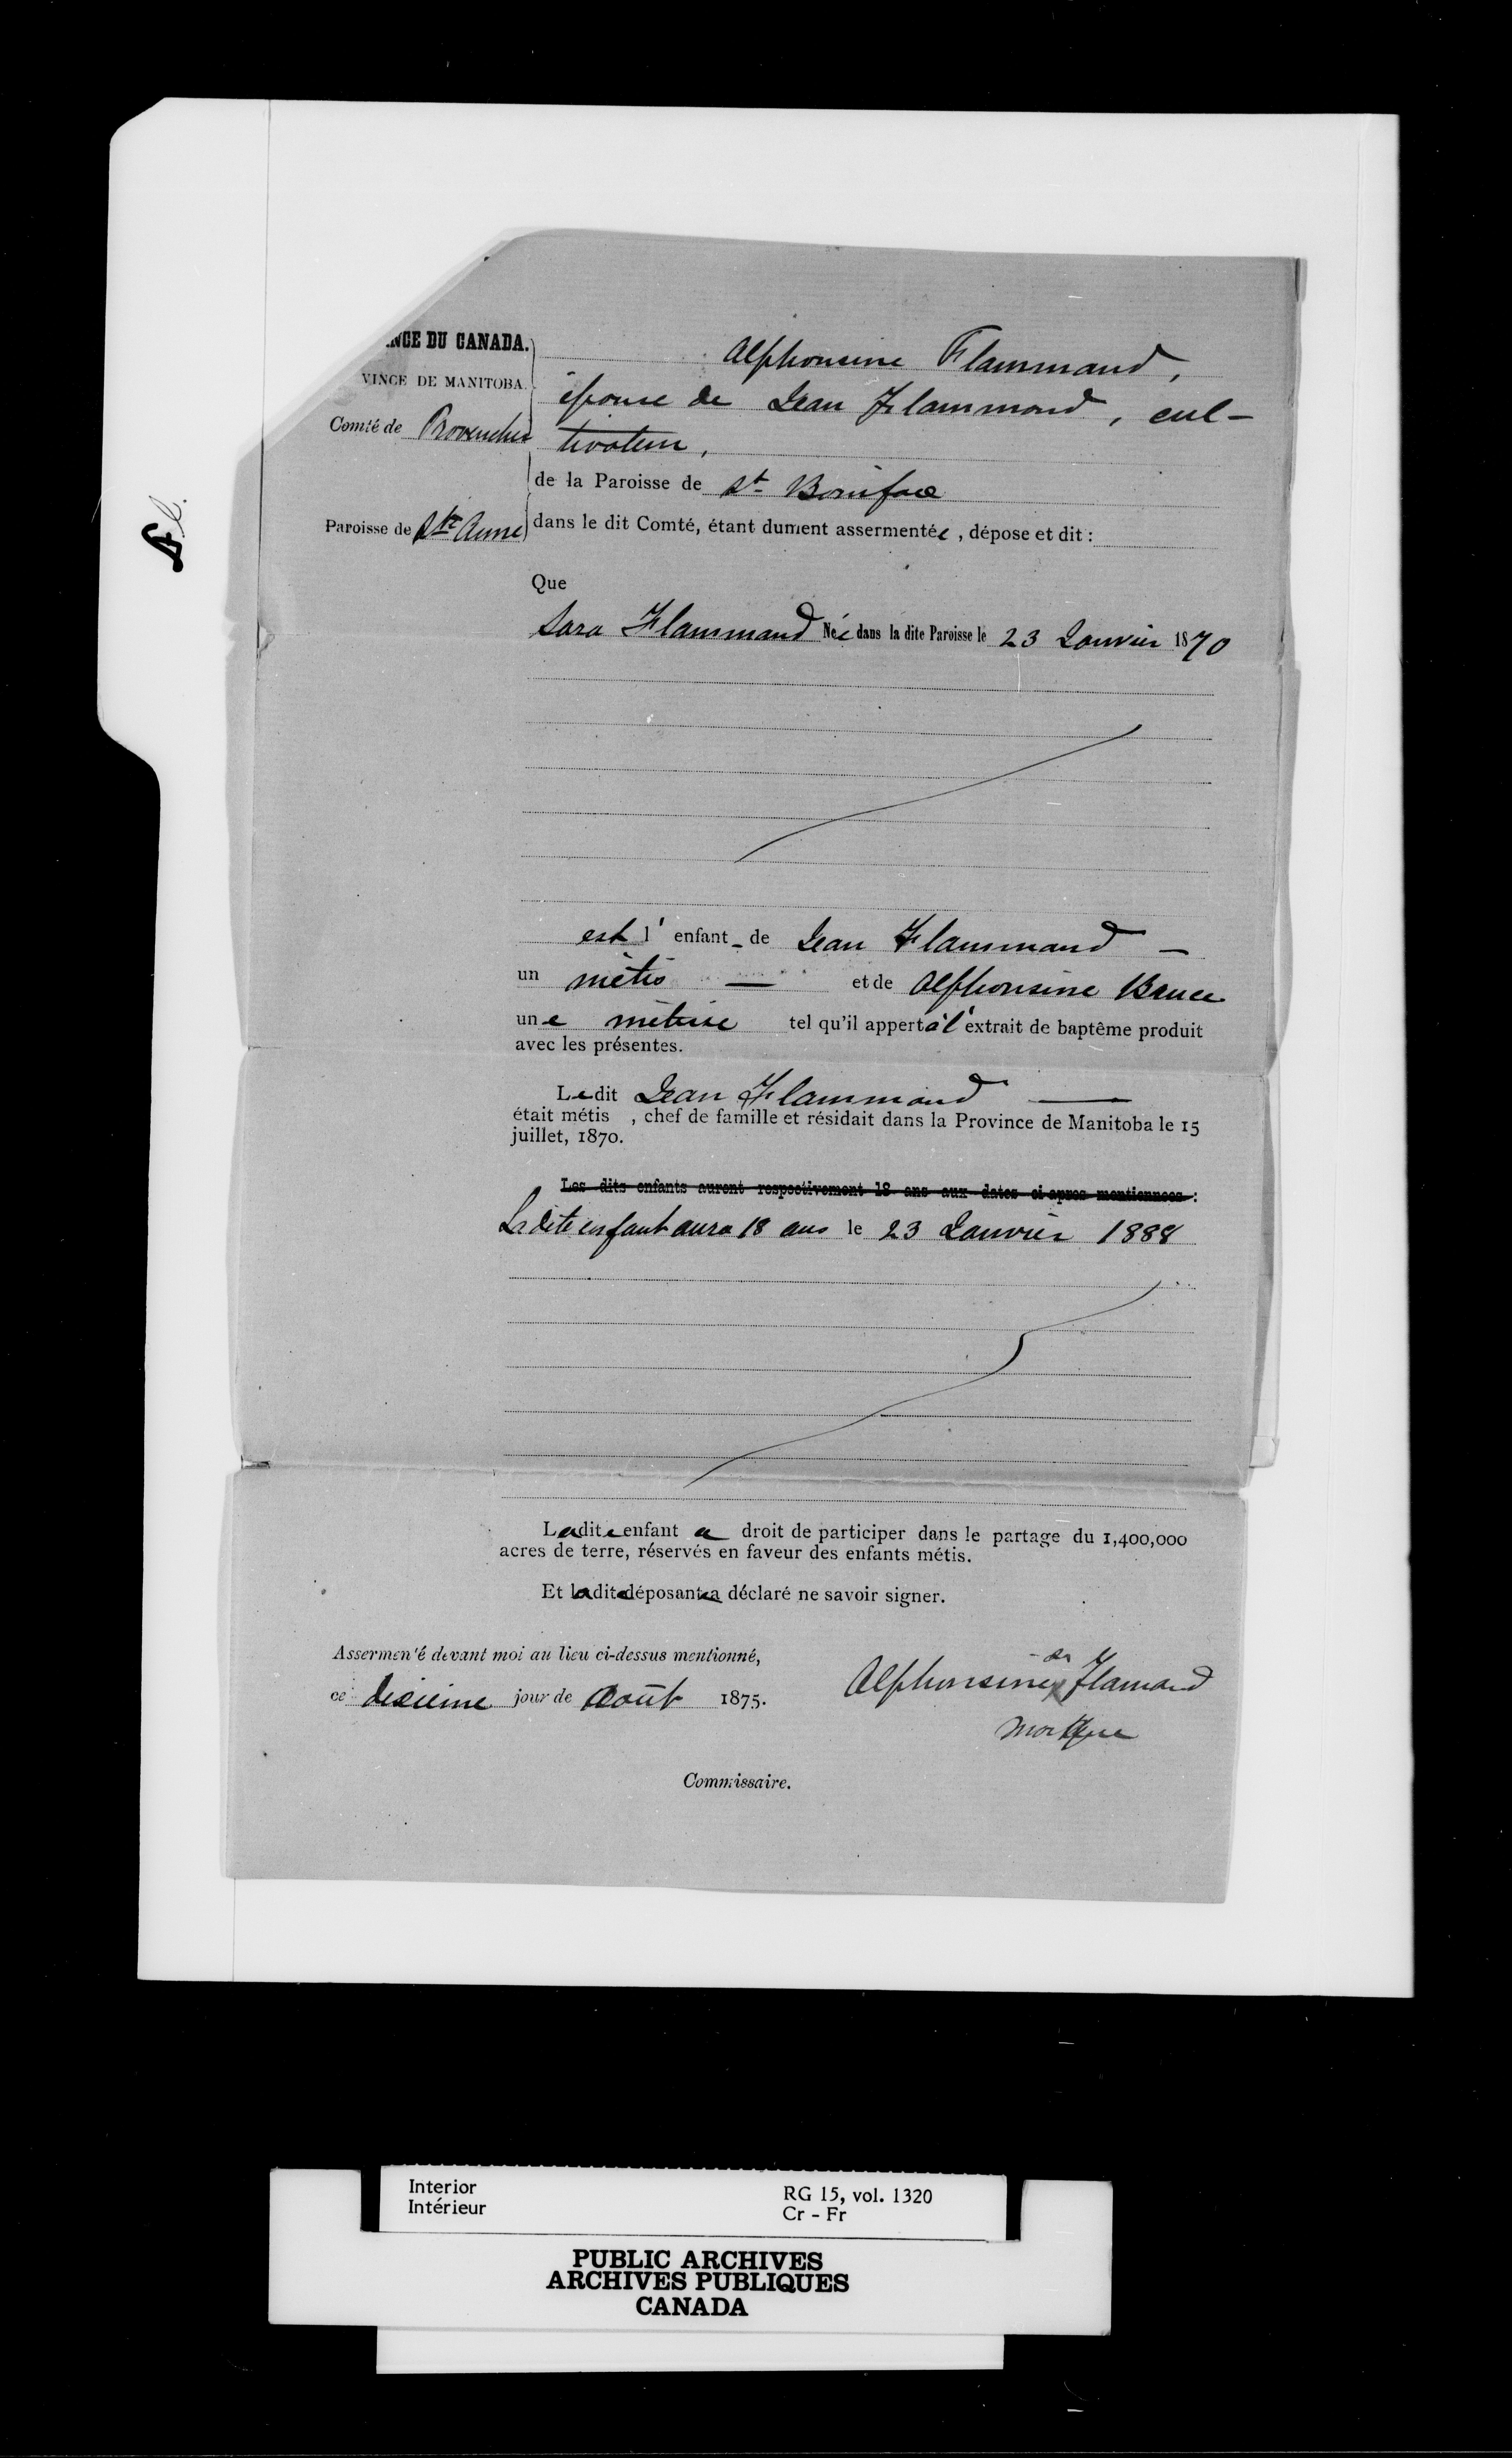 NCE DU CANADA.
VINCE DE MANITOBA.
Comté de Provencher
Paroisse de Ste Anne
Alphonsine Flammand,
épouse de Jean Flammond, cul-
tivateur,
de la Paroisse de St Boniface
dans le dit Comté, étant dument assermentée, dépose et dit :
Fl.
Que
Sara Flammand Née dans la dite Paroisse le 23 Janvier 1870
est l' enfant de Jean Flammand —
un métis — et de Alphonsine Bruce
une métisse tel qu'il appert à l'extrait de baptême produit
avec les présentes.
Le dit Jean Flammand —
était métis , chef de famille et résidait dans la Province de Manitoba le 15
juillet, 1870.
Les dits enfants auront respectivement 18 ans aux dates ci-apres mentionnees :
La dite enfant aura 18 ans le 23 Janvier 1888
La dite enfant a droit de participer dans le partage du 1,400,000
acres de terre, réservés en faveur des enfants métis.
Et la dite déposante a déclaré ne savoir signer.
Assermen'é devant moi au lieu ci-dessus mentionné,
ce dixième jour de Août 1875.
sa
Alphonsine x Flamand
marque
Commissaire.
Interior
Intérieur
RG 15, vol. 1320
Cr - Fr
PUBLIC ARCHIVES
ARCHIVES PUBLIQUES
CANADA